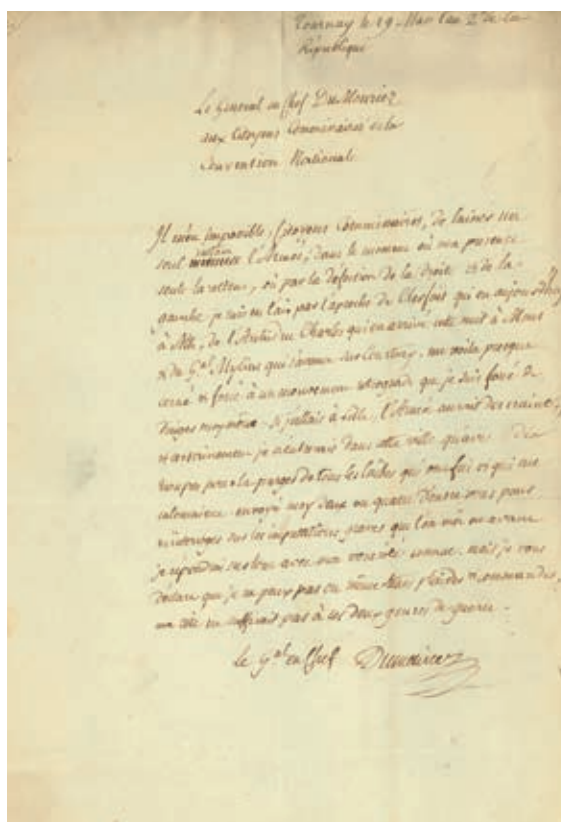 Tournay le 29. Mars l'an 2e de la
République
Le Général en Chef Dumouriez
aux Citoyens Commissaires de la
Convention Nationale
Il m'est impossible, Citoyens Commissaires, de laisser un
seul instant l'Armée, dans le moment où ma presence
seule la retient, où par la défection de la droite et de la
gauche je suis en l'air par l'aproche de Clerfait qui est aujourd'huy
à Ath, de l'Archiduc Charles qui est arrivé cette nuit à Mons
et du Gal Mylius qui s'avance sur Courtray, me voila presque
cerné et forcé à un mouvement retrograde que je suis forcé de
diriger moy même. Si j'allais à Lille, l'Armée aurait des craintes,
et certainement je n'entrerais dans cette ville qu'avec des
troupes pour la purger de tous les laches qui ont fui et qui me
calomnient. envoyés moy deux ou quatre d'entre vous pour
m'interroger sur les imputations graves que l'on
je répondrai à tout avec ma veracité connue. mais je vous
declare que je ne peux pas en même tems plaider et commander,
ma tête ne suffirait pas à ces deux genres de guerre.
Le Gal en Chef Dumouriez